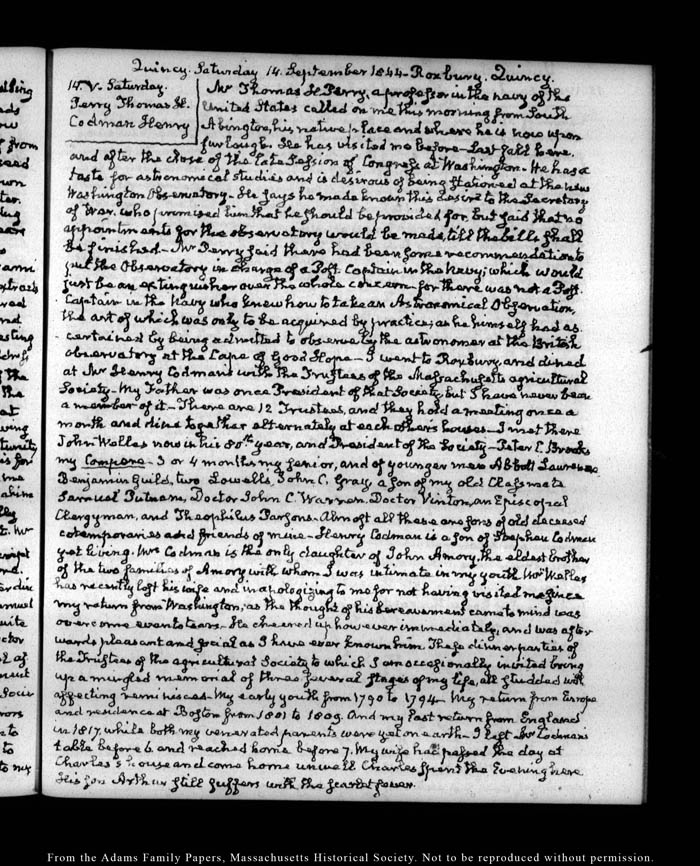 Quincy. Saturday 14. September 1844 - Roxbury. Quincy.
14. V. Saturday.
Perry Thomas H.
Codman Henry
Mr Thomas H. Perry, a professor in the navy of the
United States called on me this morning from South
Abington, his native place and where he is now upon
furlough. He has visited me before - Last fall here,
and after the close of the late Session of Congress at Washington. He has a
taste for astronomical studies and is desirous of being stationed at the new
Washington Observatory - He says he made known this desire to the Secretary
of War, who promised him that he should be provided for, but said that no
appointments for the observatory would be made, till the bells shall
be finished - Mr Perry said there had been some recommendation to
put the Observatory in charge of a Post Captain in the Navy; which would
just be an extinguisher over the whole concern - for there was not a Post.
Captain in the Navy who knew how to take an Astronomical Observation,
the art of which was only to be acquired by practice; as he himself had as-
certained by being admitted to observe by the astronomer at the British
observatory at the Cape of Good Hope - I went to Roxbury, and dined
at Mr Henry Codman's with the Trustees of the Massachusetts agricultural
Society - My Father was once President of that Society but I have never been
a member of it - There are 12 Trustees, and they hold a meeting once a
month and dine together alternately at each others houses - I met there
John Welles now in his 80th year, and President of the Society - Peter C. Brooks
my Compere - 3 or 4 months my senior, and of younger men Abbott Lawrence
Benjamin Guild, two Lowells, John C. Gray, a son of my old Classmate
Samuel Putnam, Doctor John C. Warren. Doctor Vinton, an Episcopal
Clergyman, and Theophilus Parsons - Almost all these are sons of old deceased
cotemporaries and friends of mine - Henry Codman is a son of Stephen Codman
yet living. Mrs Codman is the only daughter of John Amory, the eldest brother
of the two families of Amory with whom I was intimate in my youth Mr Welles
has recently lost his wife and in apologizing to me for not having visited me since
my return from Washington, as the thought of his bereavement came to mind was
overcome even to tears - He cheered up however immediately, and was after
wards pleasant and social as I have ever known him. These dinner parties of
the Trustees of the agricultural Society to which I am occasionally invited bring
up a mingled memorial of three several stages of my life, all studded with
affecting reminisces - My early youth from 1790 to 1794 - My return from Europe
and residence at Boston from 1801 to 1809. And my last return from England
in 1817, while both my venerated parents were yet on earth - I left Mr Codman's
table before 6 and reached home before 7. My wife had passed the day at
Charles's house and come home unwell Charles spent the Evening here
His son Arthur still suffers with the scarlet fever.
From the Adams Family Papers, Massachusetts Historical Society. Not to be reproduced without permission.